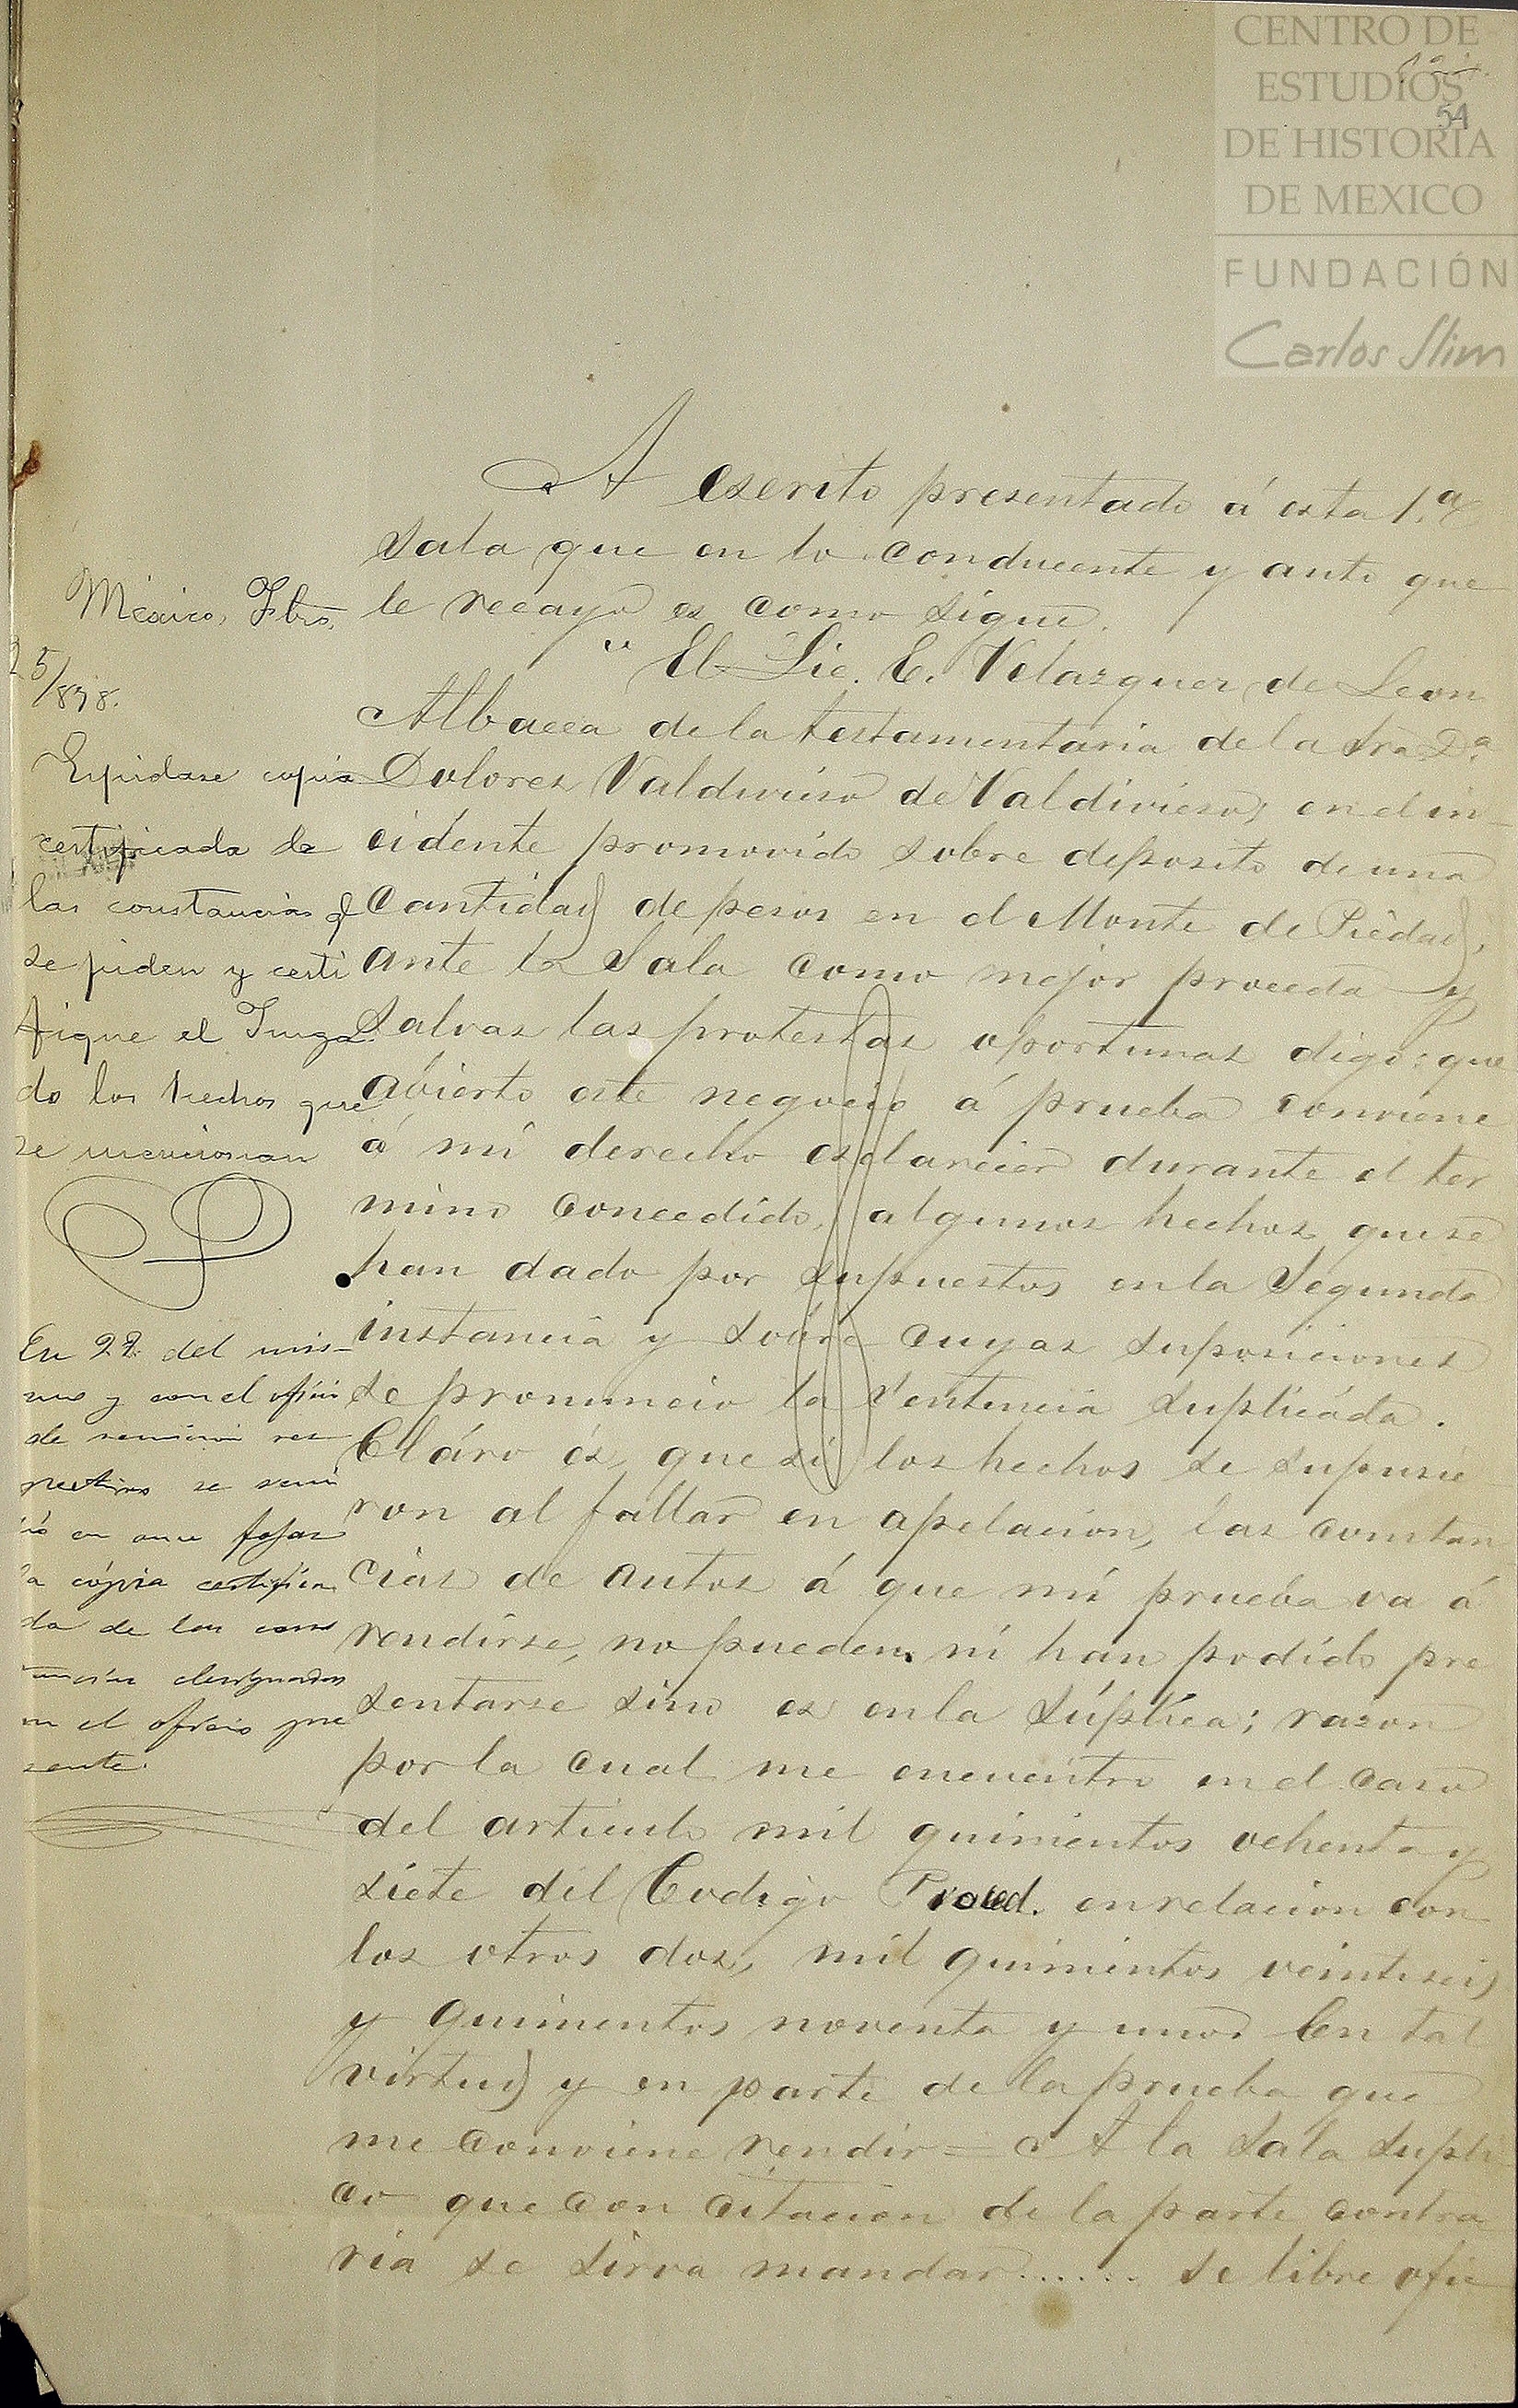 CENTRO DE
ESTUDIOS
DE HISTORIA
DE MEXICO
FUNDACIÓN
Carlos Slim
51
A escrito presentado á esta 1.a
Sala que en lo conducente y auto que
le recayó es como sigue.
"El Lic. E. Velazquez de Leon
Albacea de la testamentaria de la Sra Da
Dolores Valdivieso de Valdivieso, en el in-
cidente promovido sobre deposito de una
Cantidad de pesos en el Monte de Piedad,
ante la Sala como mejor proceda y
Salvas las protestas oportunas digo: que
abierto este negocio á prueba conviene
á mi derecho esclarecer durante el ter
mino concedido, algunos hechos que se
han dado por supuestos en la Segunda
instancia y sobre cuyas suposiciones
se pronunció la Sentencia suplicada.
Cláro és, que si los hechos se supusie-
ron al fallar en apelacion, las constan
cias de autos á que mi prueba va á
rendirse, no pueden ni han podido pre
sentarse sino es en la súplica; razon
por la cual me encuentro en el caso
del articulo mil quinientos ochenta y
siete del Codigo Proced. en relacion con
los otros dos, mil quinientos veintiseis
y quinientos noventa y uno. En tal
virtud y en parte de la prueba que
me conviene rendir = A la Sala supli
co que con citacion de la parte contra
ria se sirva mandar...... se libre ofi
México, Fbro.
25/898.
Expidase copia
certificada de
las constancias q
se piden y certi
fique el Juzga
do los hechos que
se mencionan
En 28 del mis-
mo y con el oficio
de remision res
pectivo se remi
tió en once fojas
la cópia certifica
da de las cons
tancias designadas
en el oficio pre
sente.